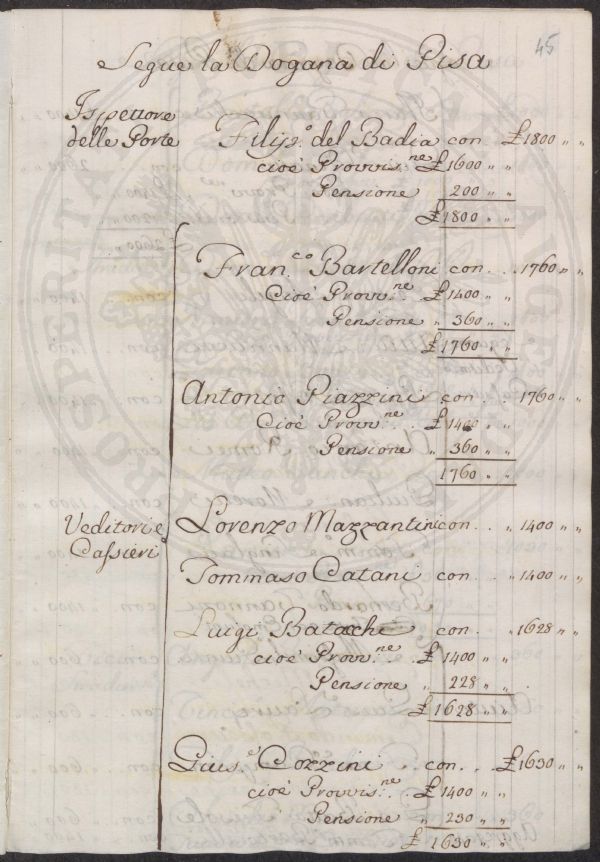 45
Segue la Dogana di Pisa
Ispettore
delle Porte
Filip.º del Badia con £ 1800 " "
cioè Provvis.ne £ 1600 " "
Pensione 200 " "
£ 1800 " "
Fran.co Bartelloni con . . 1760 " "
Cioè Provv.ne £ 1400 " "
Pensione " 360 " "
£ 1760 " "
Antonio Piazzini con . . 1760 " "
Cioè Provv.ne £ 1400 " "
Pensione " 360 " "
1760 " "
Veditori e
Cassieri
Lorenzo Mazzantini con . . " 1400 " "
Tommaso Catani con . . " 1400 " "
Luigi Batacchi con . . " 1628 " "
cioè Provv.ne £ 1400 " "
Pensione " 228 " "
£ 1628 " "
Gius.e Cozzini . . con . . £ 1630 " "
cioè Provvis.ne £ 1400 " "
Pensione " 230 " "
£ 1630 " "